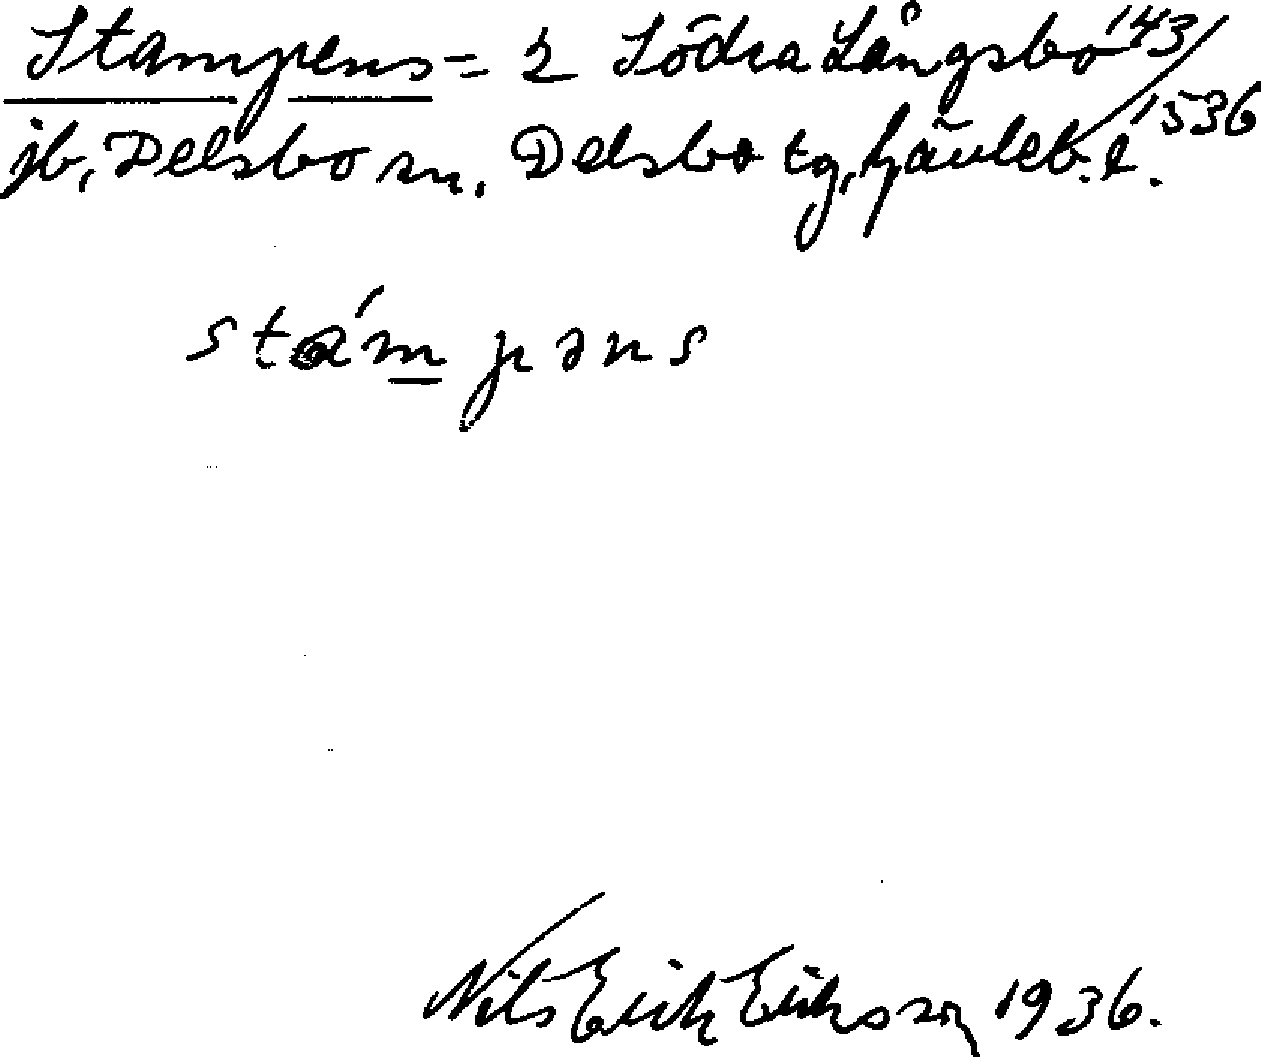 Stampens = 2 Södra Långsbo 143/1536
jb, Delsbo sn. Delsbo tg, Gävleb. l.
stámpəns
Nils Erik Eriksson 1936.